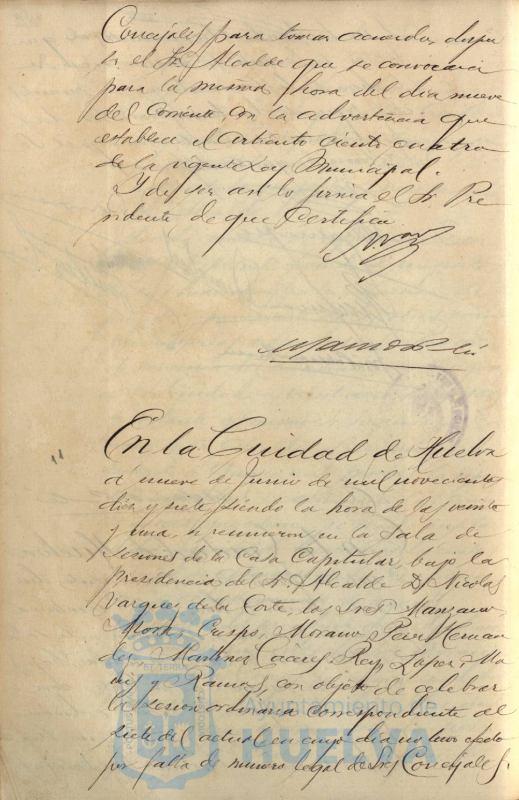 Concejales para tomar acuerdos, dispu
so el Sr. Alcalde que se convocara
para la misma hora del dia nueve
del Corriente, con la advertencia que
establece el articulo ciento cuatro
de la vigente Ley Municipal.
Y de ser asi lo firma el Sr. Pre
sidente de que Certifico.
En la Ciudad de Huelva
á nueve de Junio de mil novecientos
diez y siete, siendo la hora de las veinte
y una, se reunieron en la Sala de
Sesiones de la Casa Capitular, bajo la
presidencia del Sr. Alcalde D. Nicolas
Vazquez de la Corte, los Sres. Manzano,
Crespo, Morano, Perez Hernan
dez Martinez Caceres, Rey, Lopez
y Ramos, con objeto de celebrar
la sesion ordinaria correspondiente al
siete del actual en cuyo dia no tuvo efecto
por falta de numero legal de Sres Concejales.
Ayuntamiento de
HUELVA